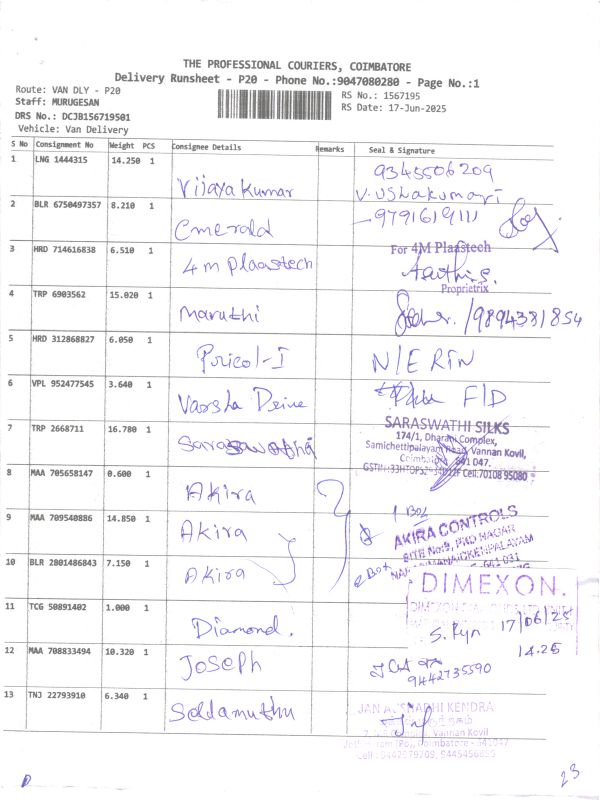 THE PROFESSIONAL COURIERS, COIMBATORE
Delivery Runsheet - P20 - Phone No.:9047080280 - Page No.:1
Route: VAN DLY - P20
Staff: MURUGESAN
DRS No.: DCJB156719501
Vehicle: Van Delivery
RS No.: 1567195
RS Date: 17-Jun-2025
S No Consignment No Weight PCS Consignee Details Remarks Seal & Signature
1 LNG 1444315 14.250 1 Vijaya Kumar 9345506209
V. Ushakumari
2 BLR 6750497357 8.210 1 Emerald - 9791619111
3 HRD 714616838 6.510 1 4m Plaastech For 4M Plaastech
Proprietrix
4 TRP 6903562 15.020 1 Maruthi /9894381854
5 HRD 312868827 6.050 1 Pricol-I N/E RTN
6 VPL 952477545 3.640 1 Varsha Drive F/D
7 TRP 2668711 16.780 1 SARASWATHI SILKS
174/1, Dharani Complex,
Samichettipalayam Road, Vannan Kovil,
Coimbatore 641 047.
Cell:70108 95080
8 MAA 705658147 0.600 1 Akira
1 Box
9 MAA 709540886 14.850 1 Akira AKIRA CONTROLS
SITE No:9, PKD NAGAR
10 BLR 2801486843 7.150 1 Akira 2 Box
641 031
DIMEXON.
11 TCG 50891402 1.000 1 Diamond. 17/06/25
14.25
12 MAA 708833494 10.320 1 Joseph
9442735590
13 TNJ 22793910 6.340 1 Selldamuthu JAN AUSHADHI KENDRA
Vannan Kovil
Coimbatore - 641047
23